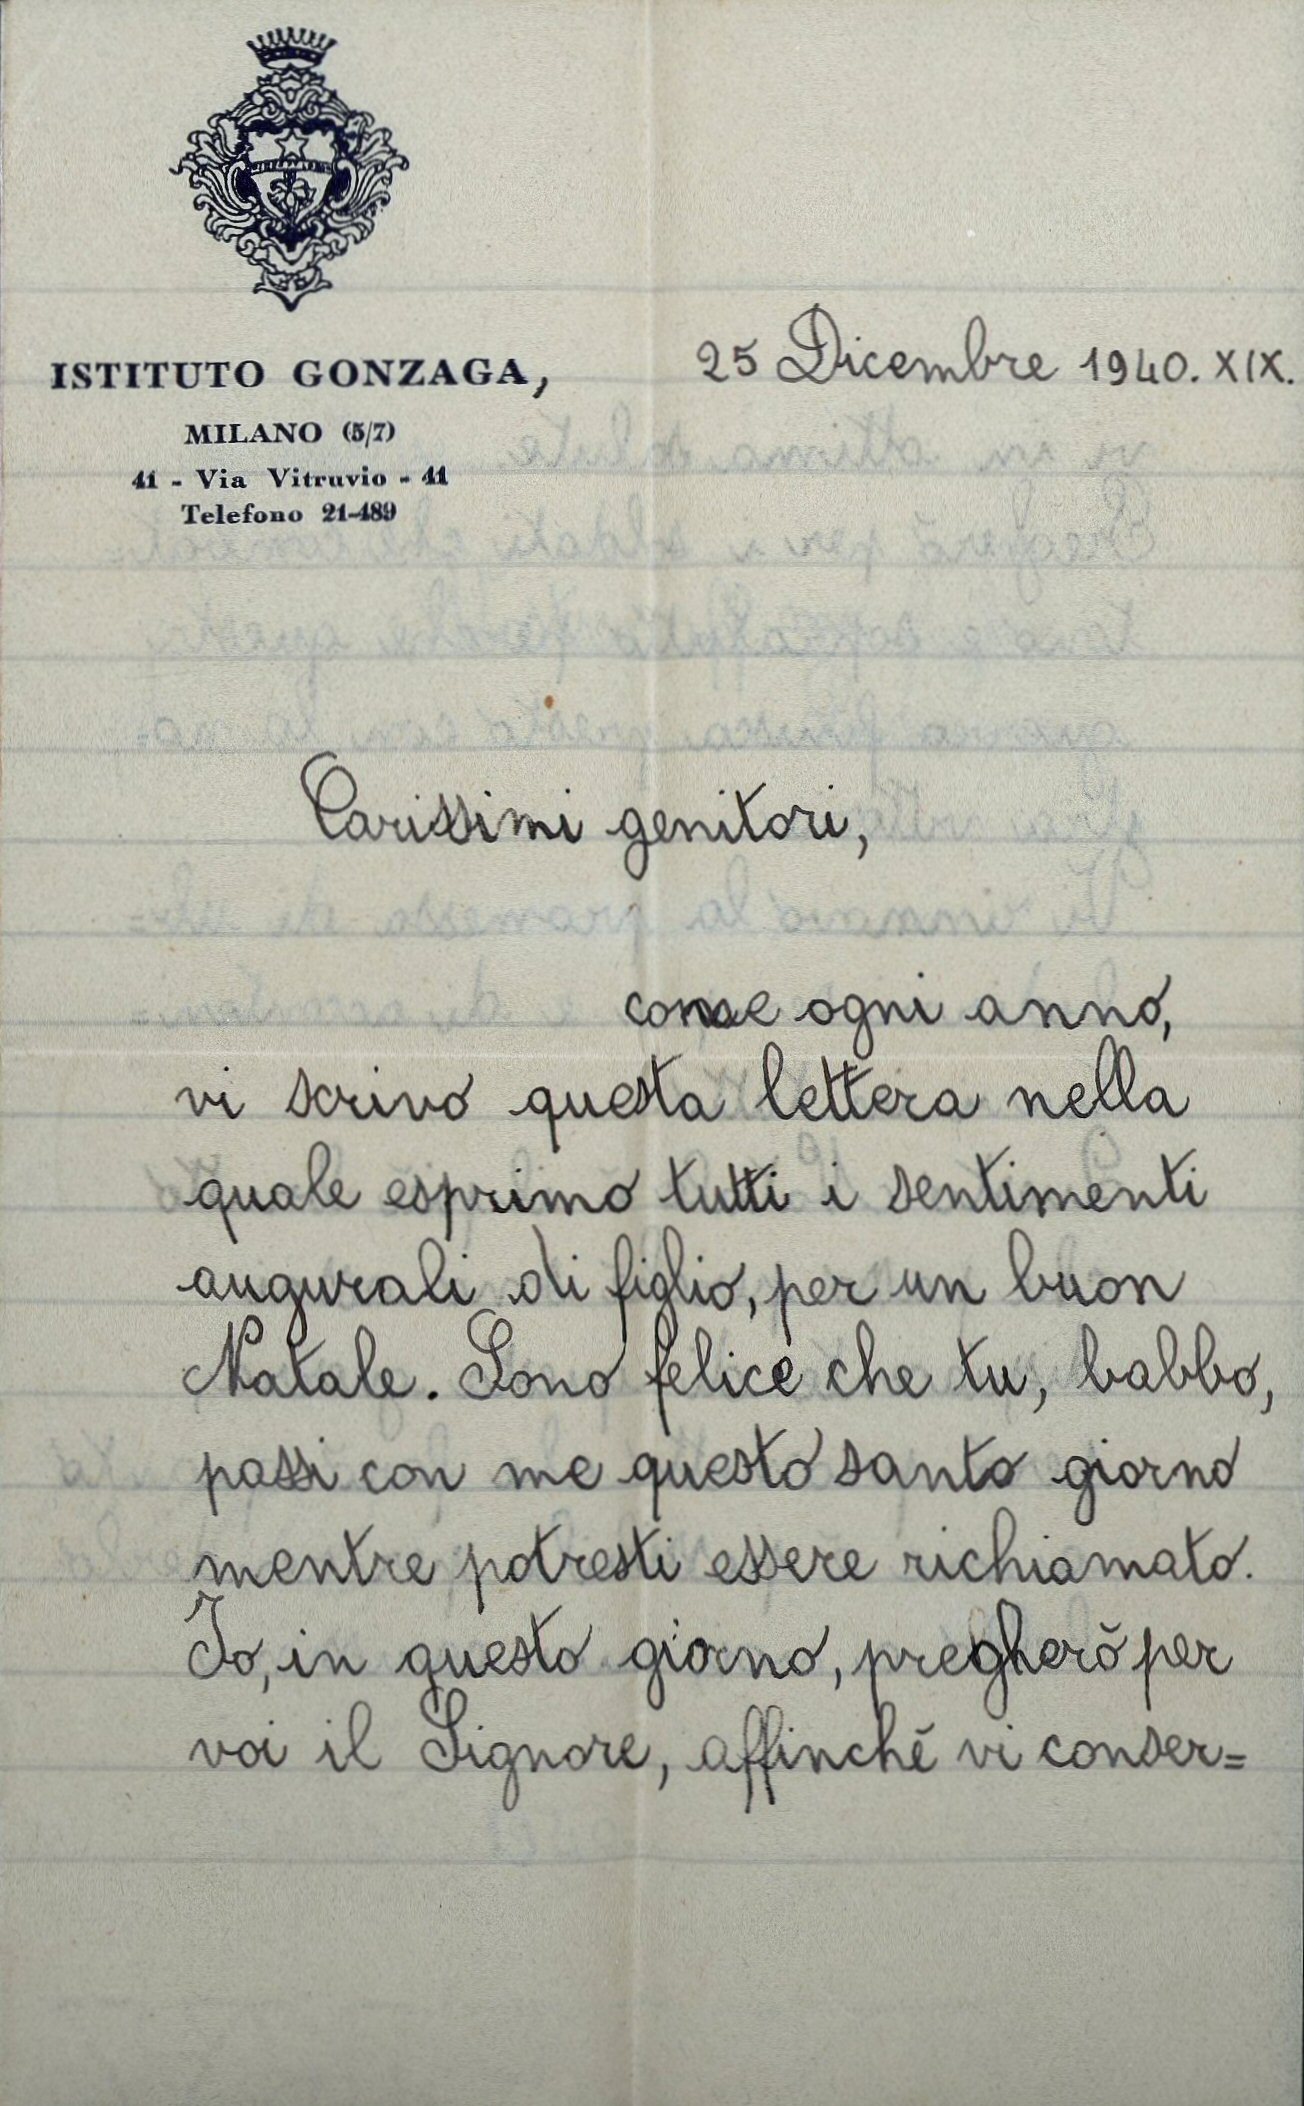 ISTITUTO GONZAGA,
MILANO (5/7)
41 - Via Vitruvio - 41
Telefono 21-489
25 Dicembre 1940. XIX.
Carissimi genitori,
come ogni anno,
vi scrivo questa lettera nella
quale esprimo tutti i sentimenti
augurali di figlio, per un buon
Natale. Sono felice che tu, babbo,
passi con me questo santo giorno
mentre potresti essere richiamato.
Io, in questo giorno, pregherò per
voi il Signore, affinché vi conser=